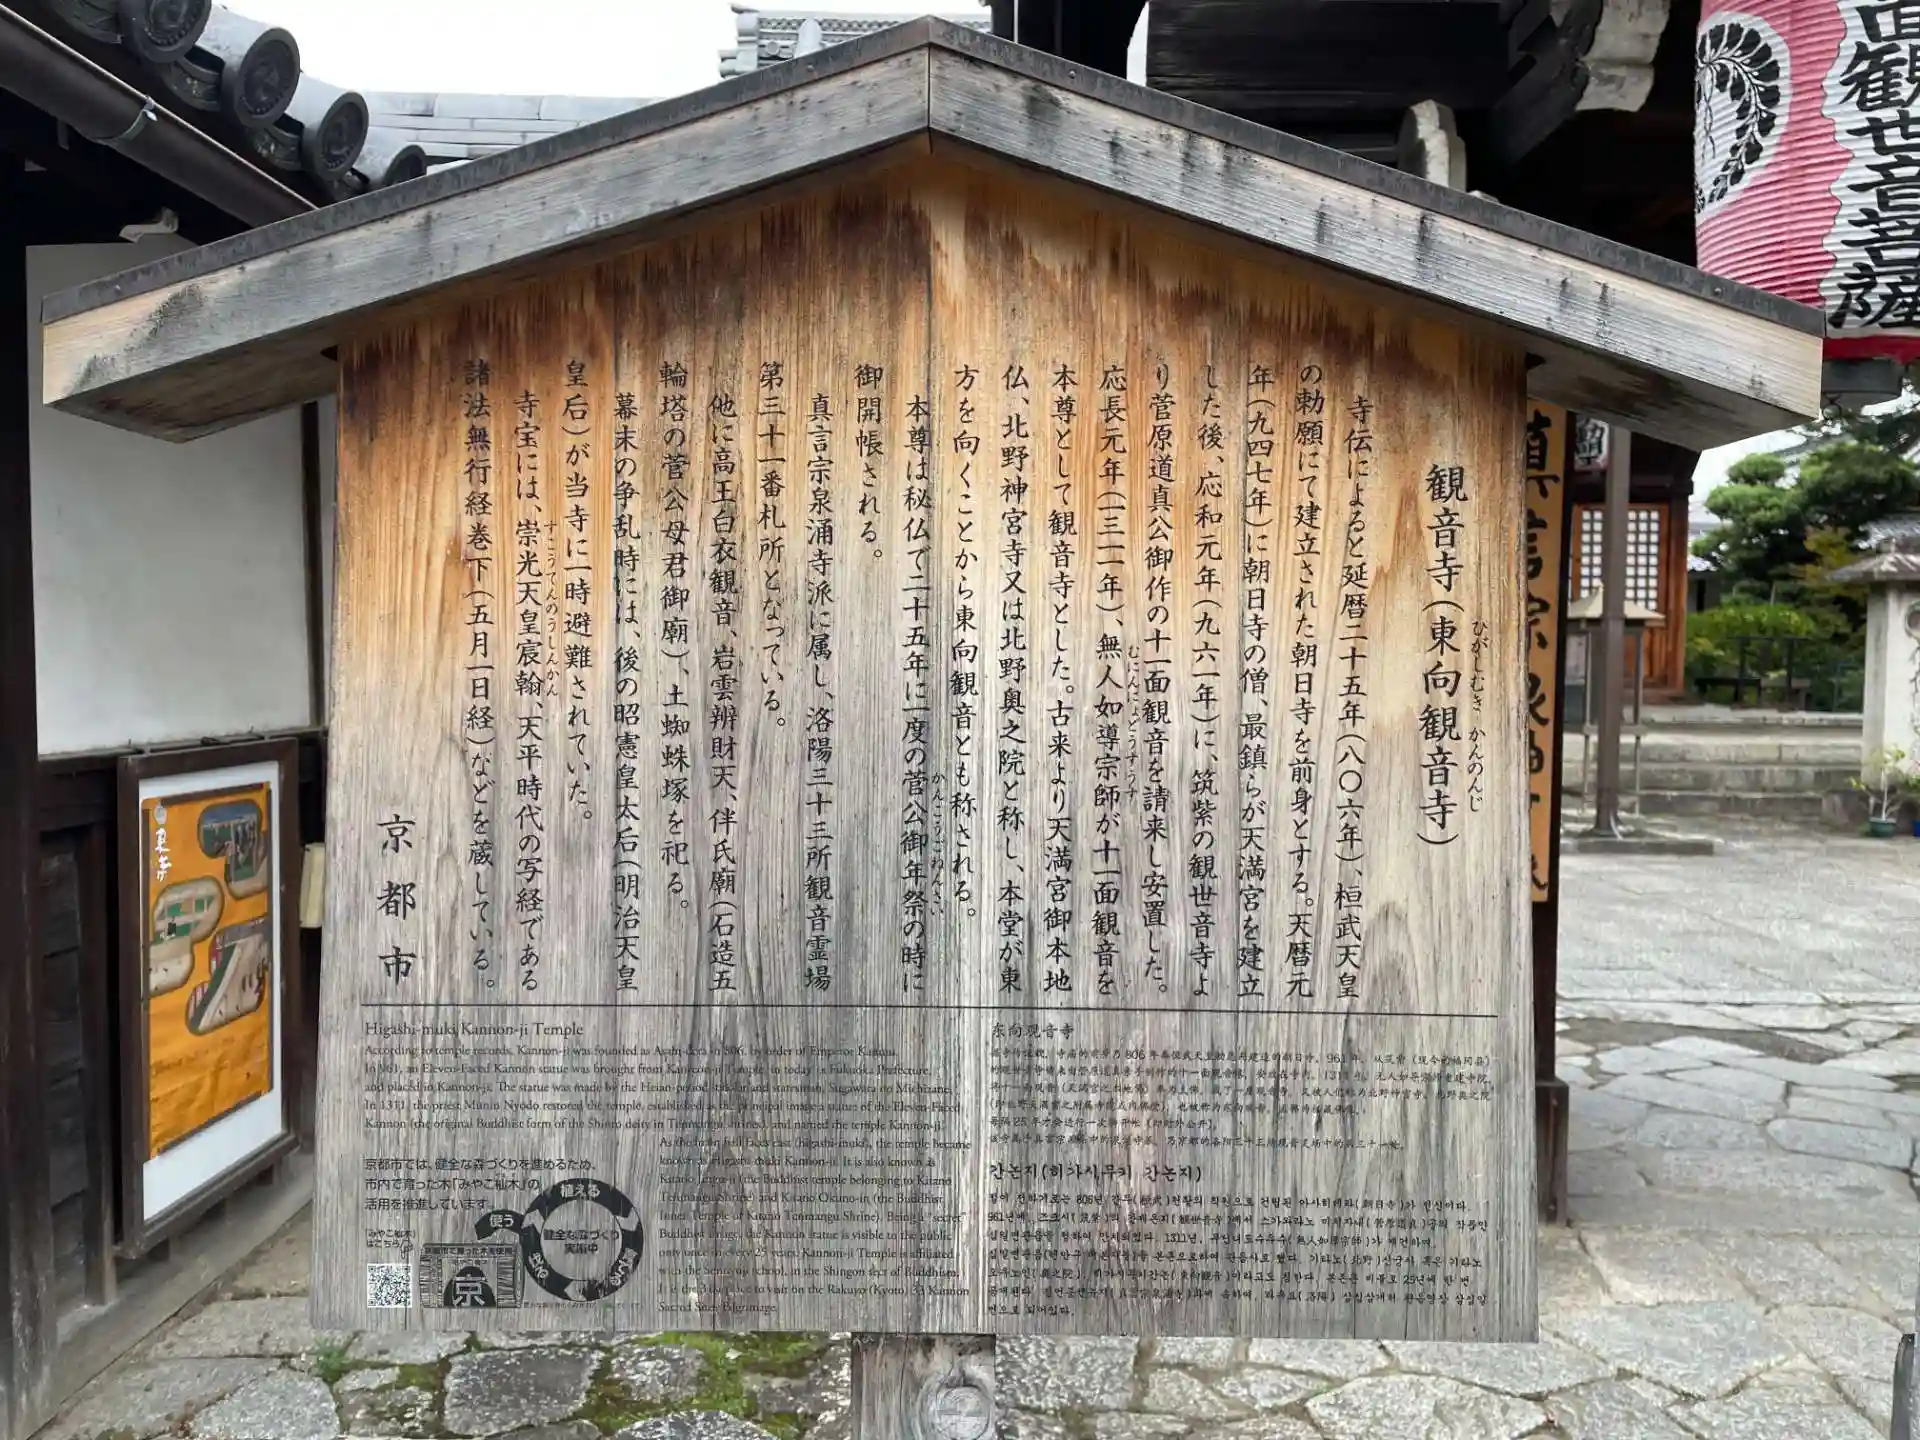 観音寺(東向観音寺)
ひがしむき かんのんじ
寺伝によると延暦二十五年(八〇六年)、桓武天皇
の勅願にて建立された朝日寺を前身とする。天暦元
年(九四七年)に朝日寺の僧、最鎮らが天満宮を建立
した後、応和元年(九六一年)に、筑紫の観世音寺よ
り菅原道真公御作の十一面観音を請来し安置した。
応長元年(一三一一年)、無人如導宗師が十一面観音を
むにんにょどうすうす
本尊として観音寺とした。古来より天満宮御本地
仏、北野神宮寺又は北野奥之院と称し、本堂が東
方を向くことから東向観音とも称される。
本尊は秘仏で二十五年に一度の菅公御年祭の時に
かんこうごねんさい
御開帳される。
真言宗泉涌寺派に属し、洛陽三十三所観音霊場
第三十一番札所となっている。
他に高王白衣観音、岩雲辨財天、伴氏廟(石造五
輪塔の菅公母君御廟)、土蜘蛛塚を祀る。
幕末の争乱時には、後の昭憲皇太后(明治天皇
皇后)が当寺に一時避難されていた。
寺宝には、崇光天皇宸翰、天平時代の写経である
すこうてんのうしんかん
諸法無行経巻下(五月一日経)などを蔵している。
京都市
Higashi-muki Kannon-ji Temple
According to temple records, Kannon-ji was founded as Asahi-dera in 806, by order of Emperor Kanmu.
In 961, an Eleven-Faced Kannon statue was brought from Kanzeon-ji Temple, in today's Fukuoka Prefecture,
and placed in Kannon-ji. The statue was made by the Heian-period scholar and statesman, Sugawara no Michizane.
In 1311, the priest Munin Nyodo restored the temple, established as the principal image a statue of the Eleven-Faced
Kannon (the original Buddhist form of the Shinto deity in Tenmangu shrines), and named the temple Kannon-ji.
As the main hall faces east (higashi-muki), the temple became
known as Higashi-muki Kannon-ji. It is also known as
Kitano Jingu-ji (the Buddhist temple belonging to Kitano
Tenmangu Shrine) and Kitano Okuno-in (the Buddhist
Inner Temple of Kitano Tenmangu Shrine). Being a "secret"
Buddhist image, the Kannon statue is visible to the public
only once in every 25 years. Kannon-ji Temple is affiliated
with the Sennyuji school, in the Shingon sect of Buddhism.
It is the 31st place to visit on the Rakuyo (Kyoto) 33 Kannon
Sacred Sites Pilgrimage.
京都市では、健全な森づくりを進めるため、
市内で育った木「みやこ杣木」の
活用を推進しています。
「みやこ杣木」
はこちら
植える
使う
育てる
健全な森づくり
実施中
京
东向观音寺
간논지(히가시무키 간논지)
面観世音菩薩
真言宗泉涌寺派